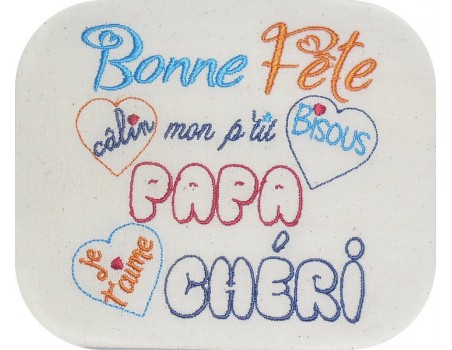 Bonne Fête
câlin mon p'tit Bisous
PAPA
je t'aime CHÉRI